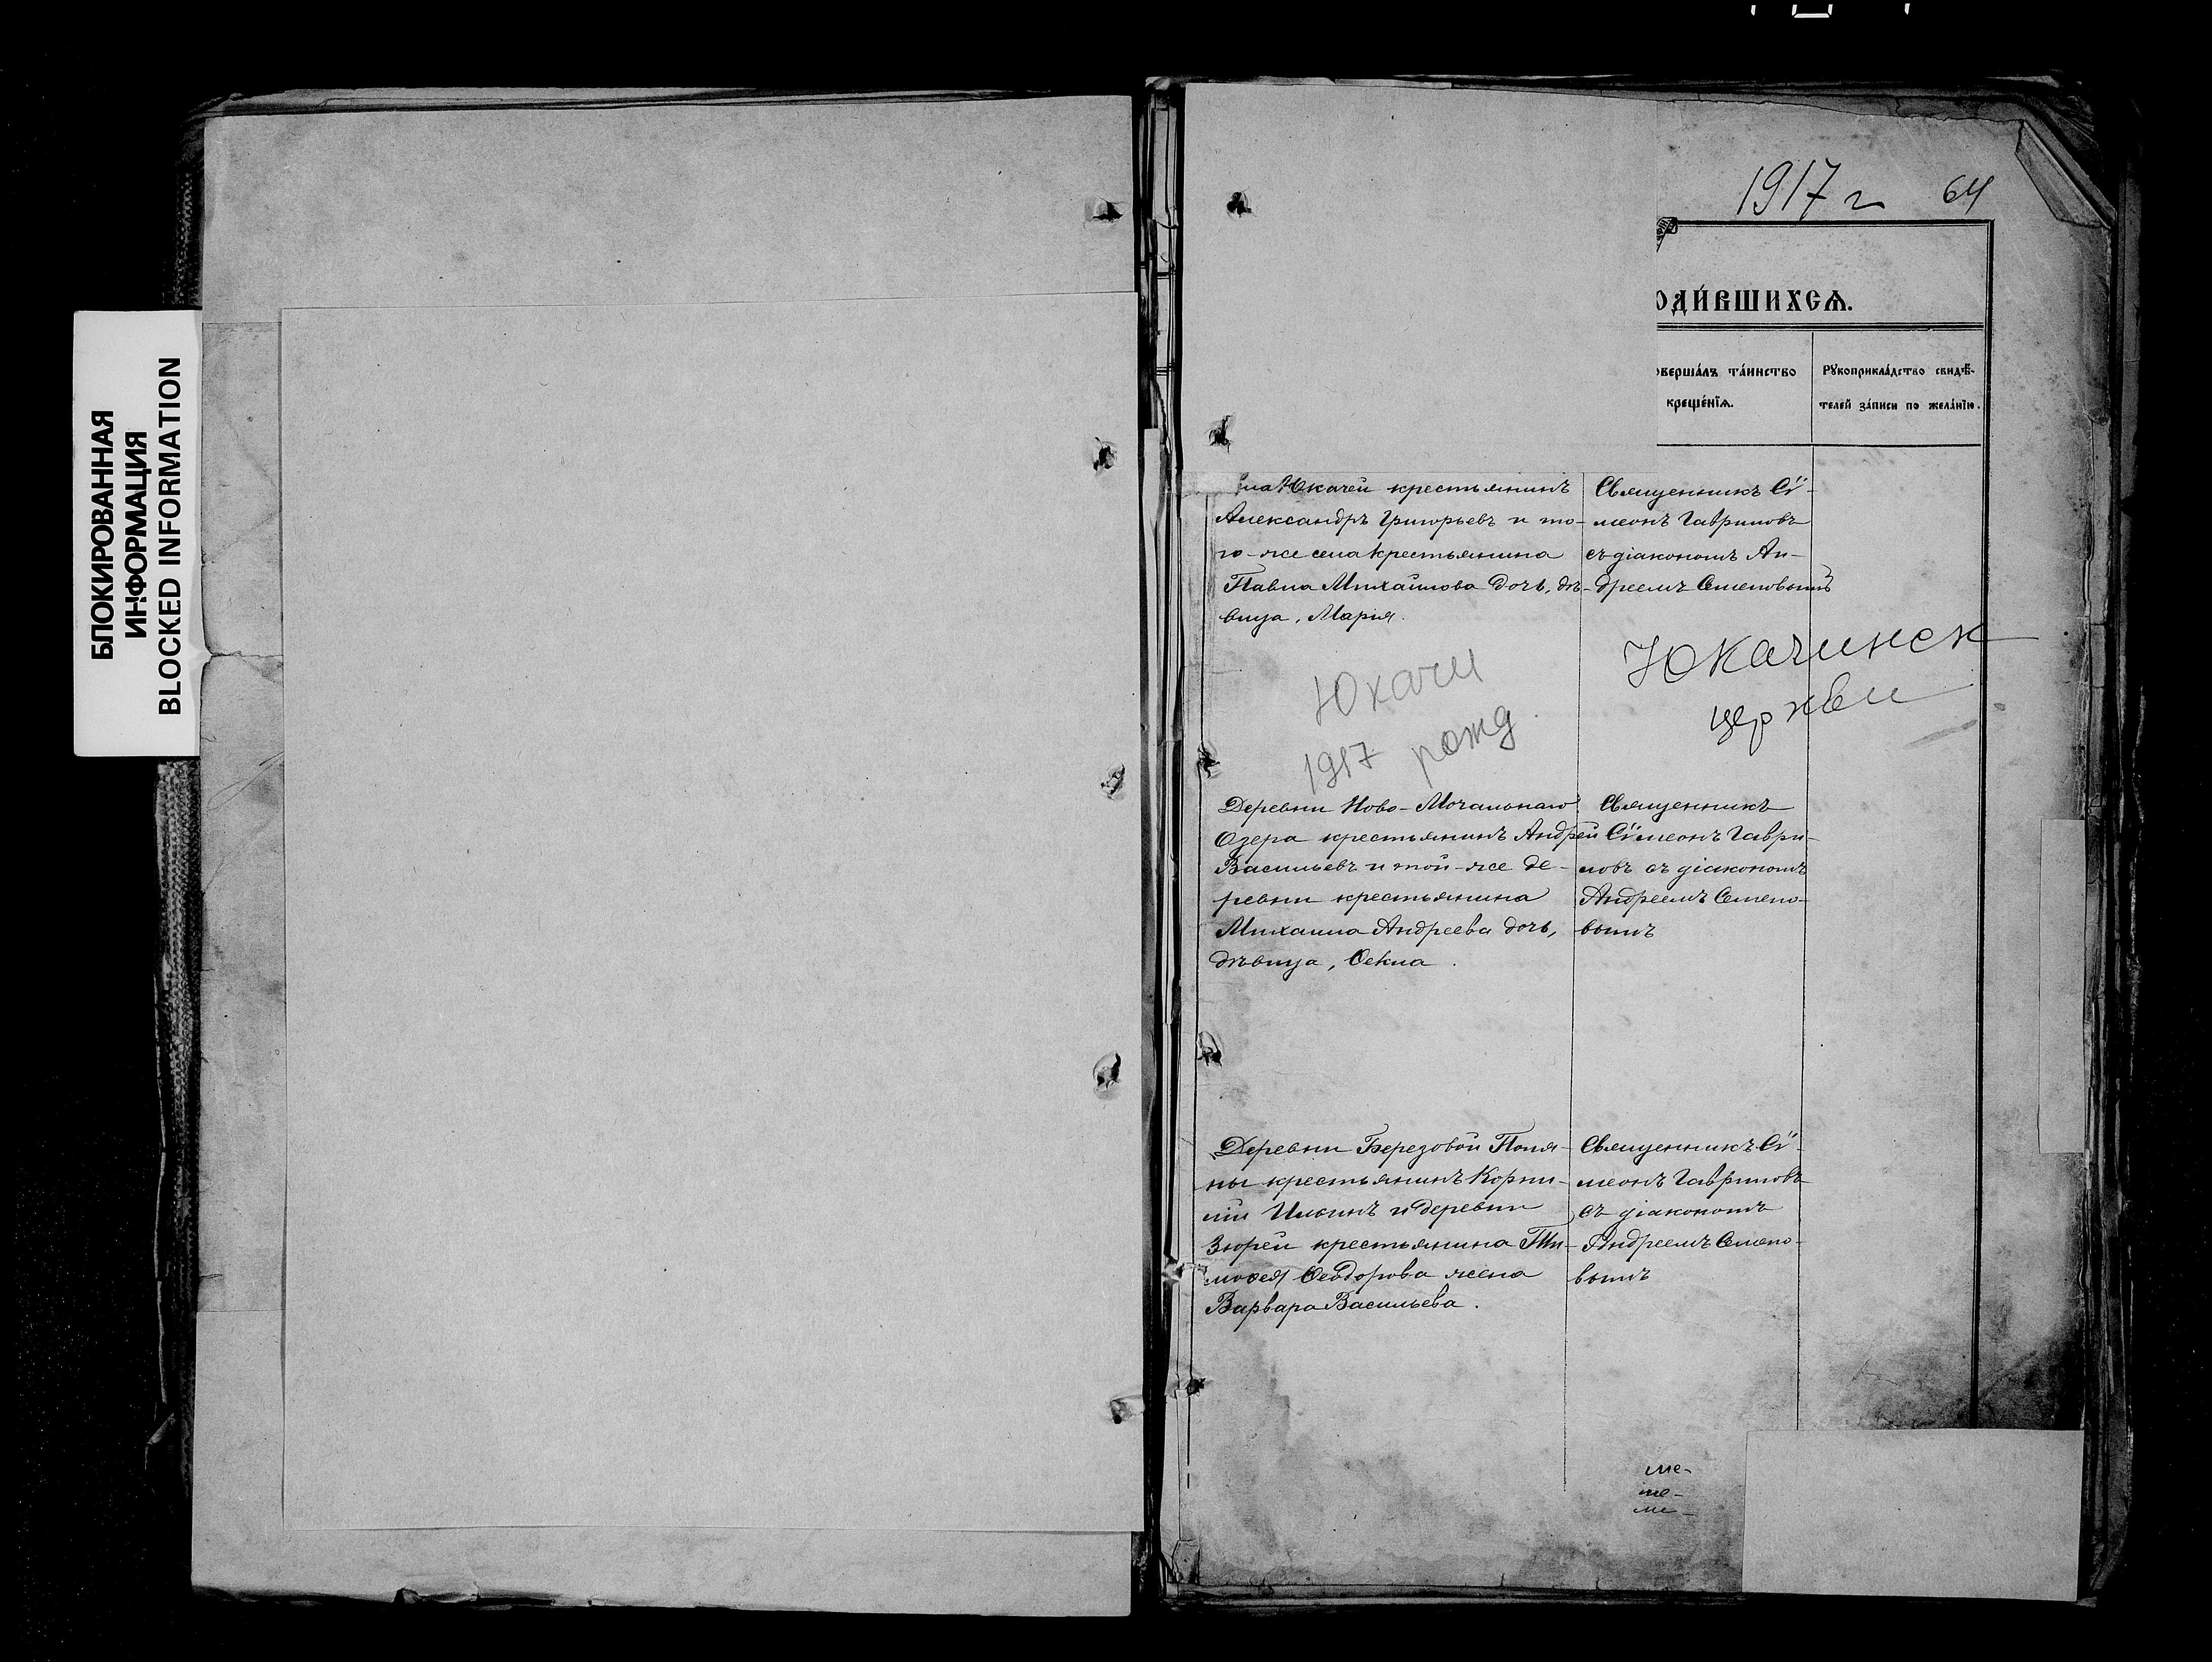 БЛОКИРОВАННАЯ
ИНФОРМАЦИЯ
BLOCKED INFORMATION
1917 г 64
ОДИ́ВШИХСѦ.
овершáлъ тáинство
крещéнїѧ.
Рꙋкоприклáдство свидѣ́-
телей зáписи по желáнїю.
ла Юкачей крестьянинъ
Александръ Григорьевъ и то-
го-же села крестьянина
Павла Михайлова дочь, дѣ-
вица, Марія.
Священникъ Сѵ-
меонъ Гавриловъ
съ діакономъ Ан-
дреемъ Семеновымъ
Юкачи
1917 рожд
Юкачинск
церкви
Деревни Ново-Мочальнаго
Озера крестьянинъ Андрей
Васильевъ и той-же де-
ревни крестьянина
Михаила Андреева дочь,
дѣвица, Ѳекла.
Священникъ
Сѵмеонъ Гаври-
ловъ съ діакономъ
Андреемъ Семено-
вымъ
Деревни Березовой Поля-
ны крестьянинъ Корни-
лій Ильинъ и деревни
Зюрей крестьянина Ти-
моѳея Ѳеодорова жена
Варвара Васильева.
Священникъ Сѵ-
меонъ Гавриловъ
съ діакономъ
Андреемъ Семено-
вымъ
ме-
ме-
ме-